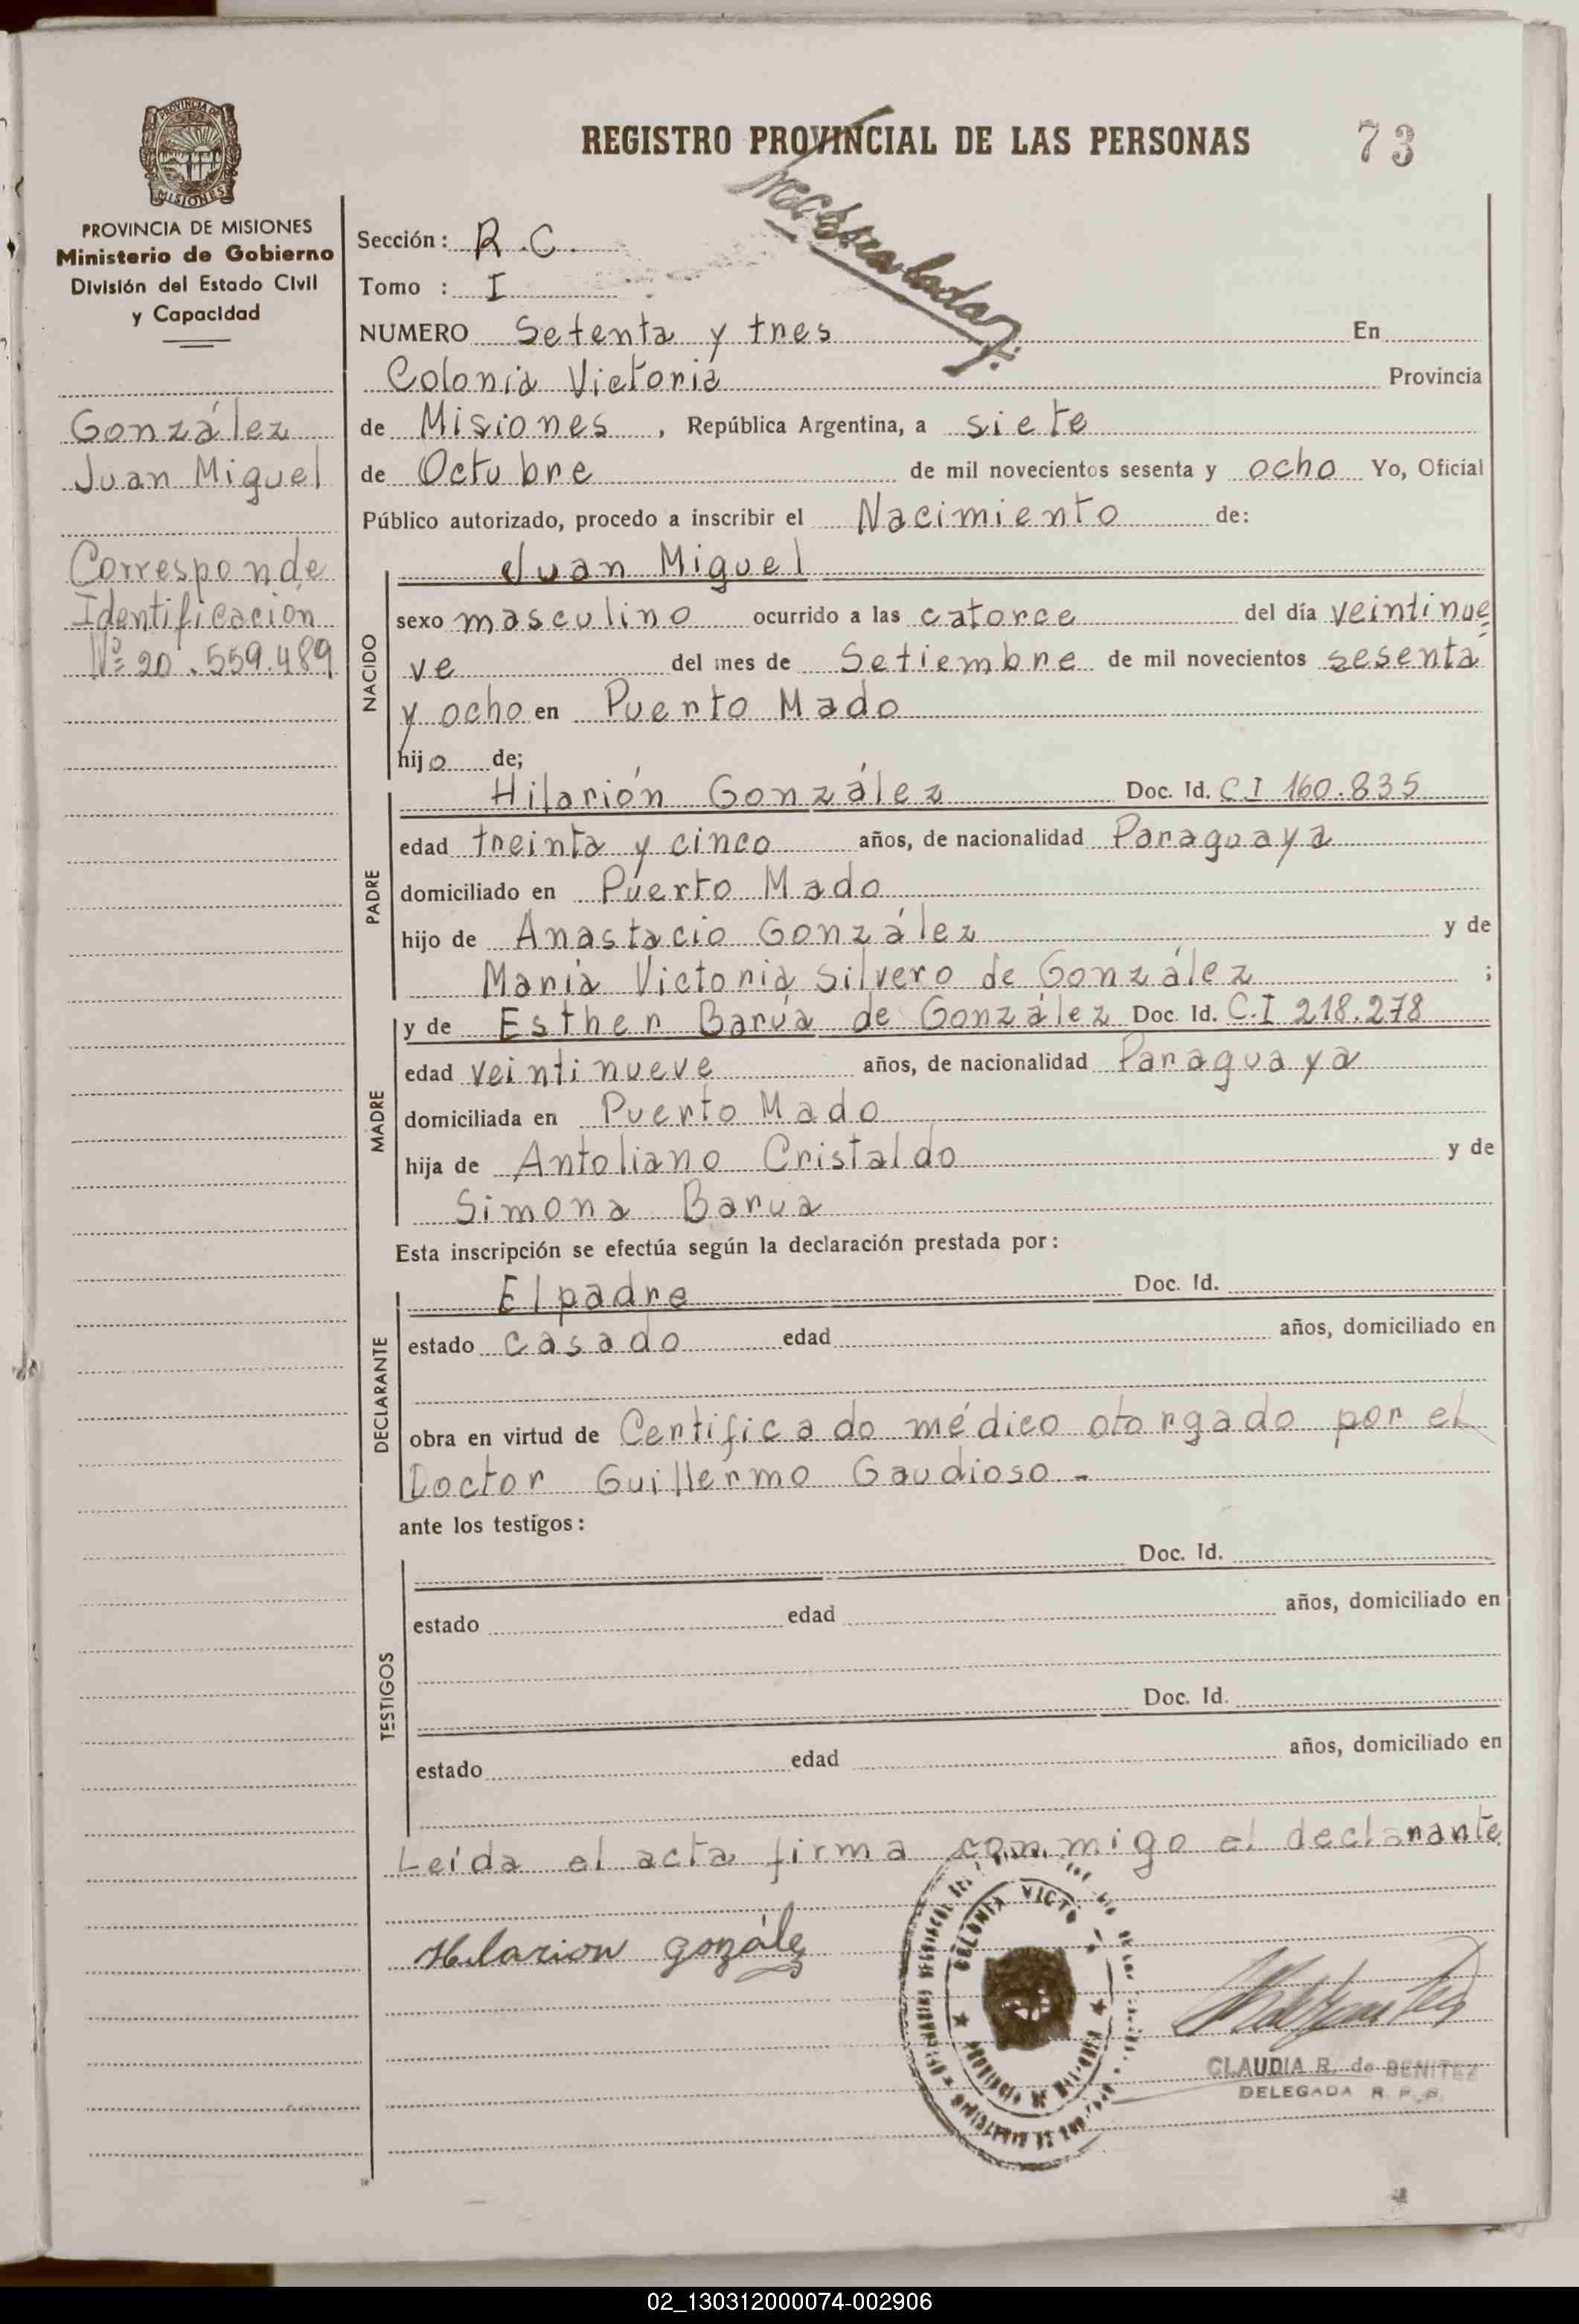 REGISTRO PROVINCIAL DE LAS PERSONAS
73
PROVINCIA DE
MISIONES
PROVINCIA DE MISIONES
Ministerio de Gobierno
División del Estado Civil
y Capacidad
González
Juan Miguel
Corresponde
Identificación
Nº 20.559.489
Sección: R.C.
Tomo : I
NUMERO Setenta y tres En
Colonia Victoria Provincia
de Misiones, República Argentina, a siete
de Octubre de mil novecientos sesenta y ocho Yo, Oficial
Público autorizado, procedo a inscribir el Nacimiento de:
NACIDO
Juan Miguel
sexo masculino ocurrido a las catorce del día veintinue
ve del mes de Setiembre de mil novecientos sesenta
y ocho en Puerto Mado
hijo de;
PADRE
Hilarión González Doc. Id. C.I 160.835
edad treinta y cinco años, de nacionalidad Paraguaya
domiciliado en Puerto Mado
hijo de Anastacio González y de
María Victoria Silvero de González ;
MADRE
y de Esther Barúa de González Doc. Id. C.I 218.278
edad veintinueve años, de nacionalidad Paraguaya
domiciliada en Puerto Mado
hija de Antoliano Cristaldo y de
Simona Barua
Esta inscripción se efectúa según la declaración prestada por:
DECLARANTE
El padre Doc. Id.
estado casado edad años, domiciliado en
obra en virtud de Certificado médico otorgado por el
Doctor Guillermo Gaudioso -
ante los testigos:
TESTIGOS
Doc. Id.
estado edad años, domiciliado en
Doc. Id.
estado edad años, domiciliado en
Leída el acta firma conmigo el declarante
Hilarion gozález
COLONIA VICTO
CLAUDIA R. de BENITEZ
DELEGADA R. P. P.
02_130312000074-002906